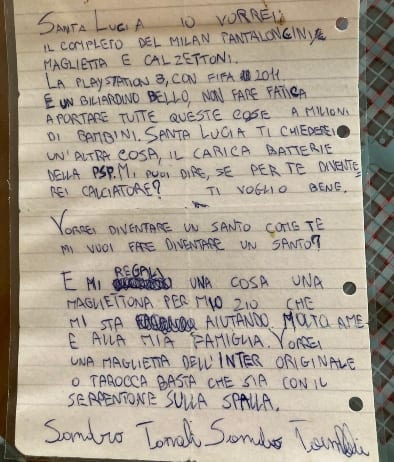 SANTA LUCIA IO VORREI:
IL COMPLETO DEL MILAN PANTALONCINI,
MAGLIETTA E CALZETTONI.
LA PLAYSTATION 3, CON FIFA 2011.
E UN BILIARDINO BELLO, NON FARE FATICA
A PORTARE TUTTE QUESTE COSE A MILIONI
DI BAMBINI. SANTA LUCIA TI CHIEDEREI
UN'ALTRA COSA, IL CARICA BATTERIE
DELLA PSP. MI PUOI DIRE, SE PER TE DIVENTE
REI CALCIATORE? TI VOGLIO BENE.
VORREI DIVENTARE UN SANTO COME TE
MI VUOI FARE DIVENTARE UN SANTO?
E MI REGALI UNA COSA UNA
MAGLIETTONA PER MIO ZIO CHE
MI STA AIUTANDO MOLTO A ME
E ALLA MIA FAMIGLIA. VORREI
UNA MAGLIETTA DELL'INTER ORIGINALE
O TAROCCA BASTA CHE SIA CON IL
SERPENTONE SULLA SPALLA.
Sandro Tonali Sandro Tonali